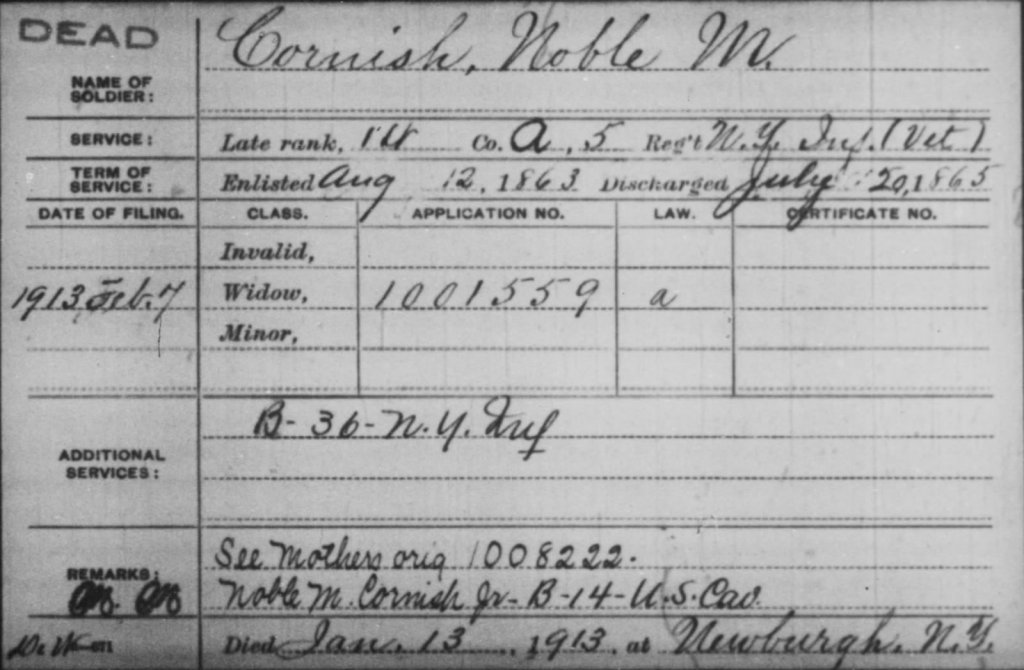 DEAD
NAME OF SOLDIER: Cornish, Noble M.
SERVICE: Late rank, Co. A, 5 Reg't N.Y. Inf. (Vet)
TERM OF SERVICE: Enlisted Aug 12, 1863 Discharged July 20, 1865
DATE OF FILING. CLASS. APPLICATION NO. LAW. CERTIFICATE NO.
Invalid,
1913 Feb. 7 Widow, 1001559 a
Minor,
ADDITIONAL SERVICES: B-36-N.Y. Inf
REMARKS: See Mothers orig 1008222.
Noble M. Cornish Jr- B-14-U.S. Cav.
Died Jan. 13, 1913, at Newburgh, N.Y.